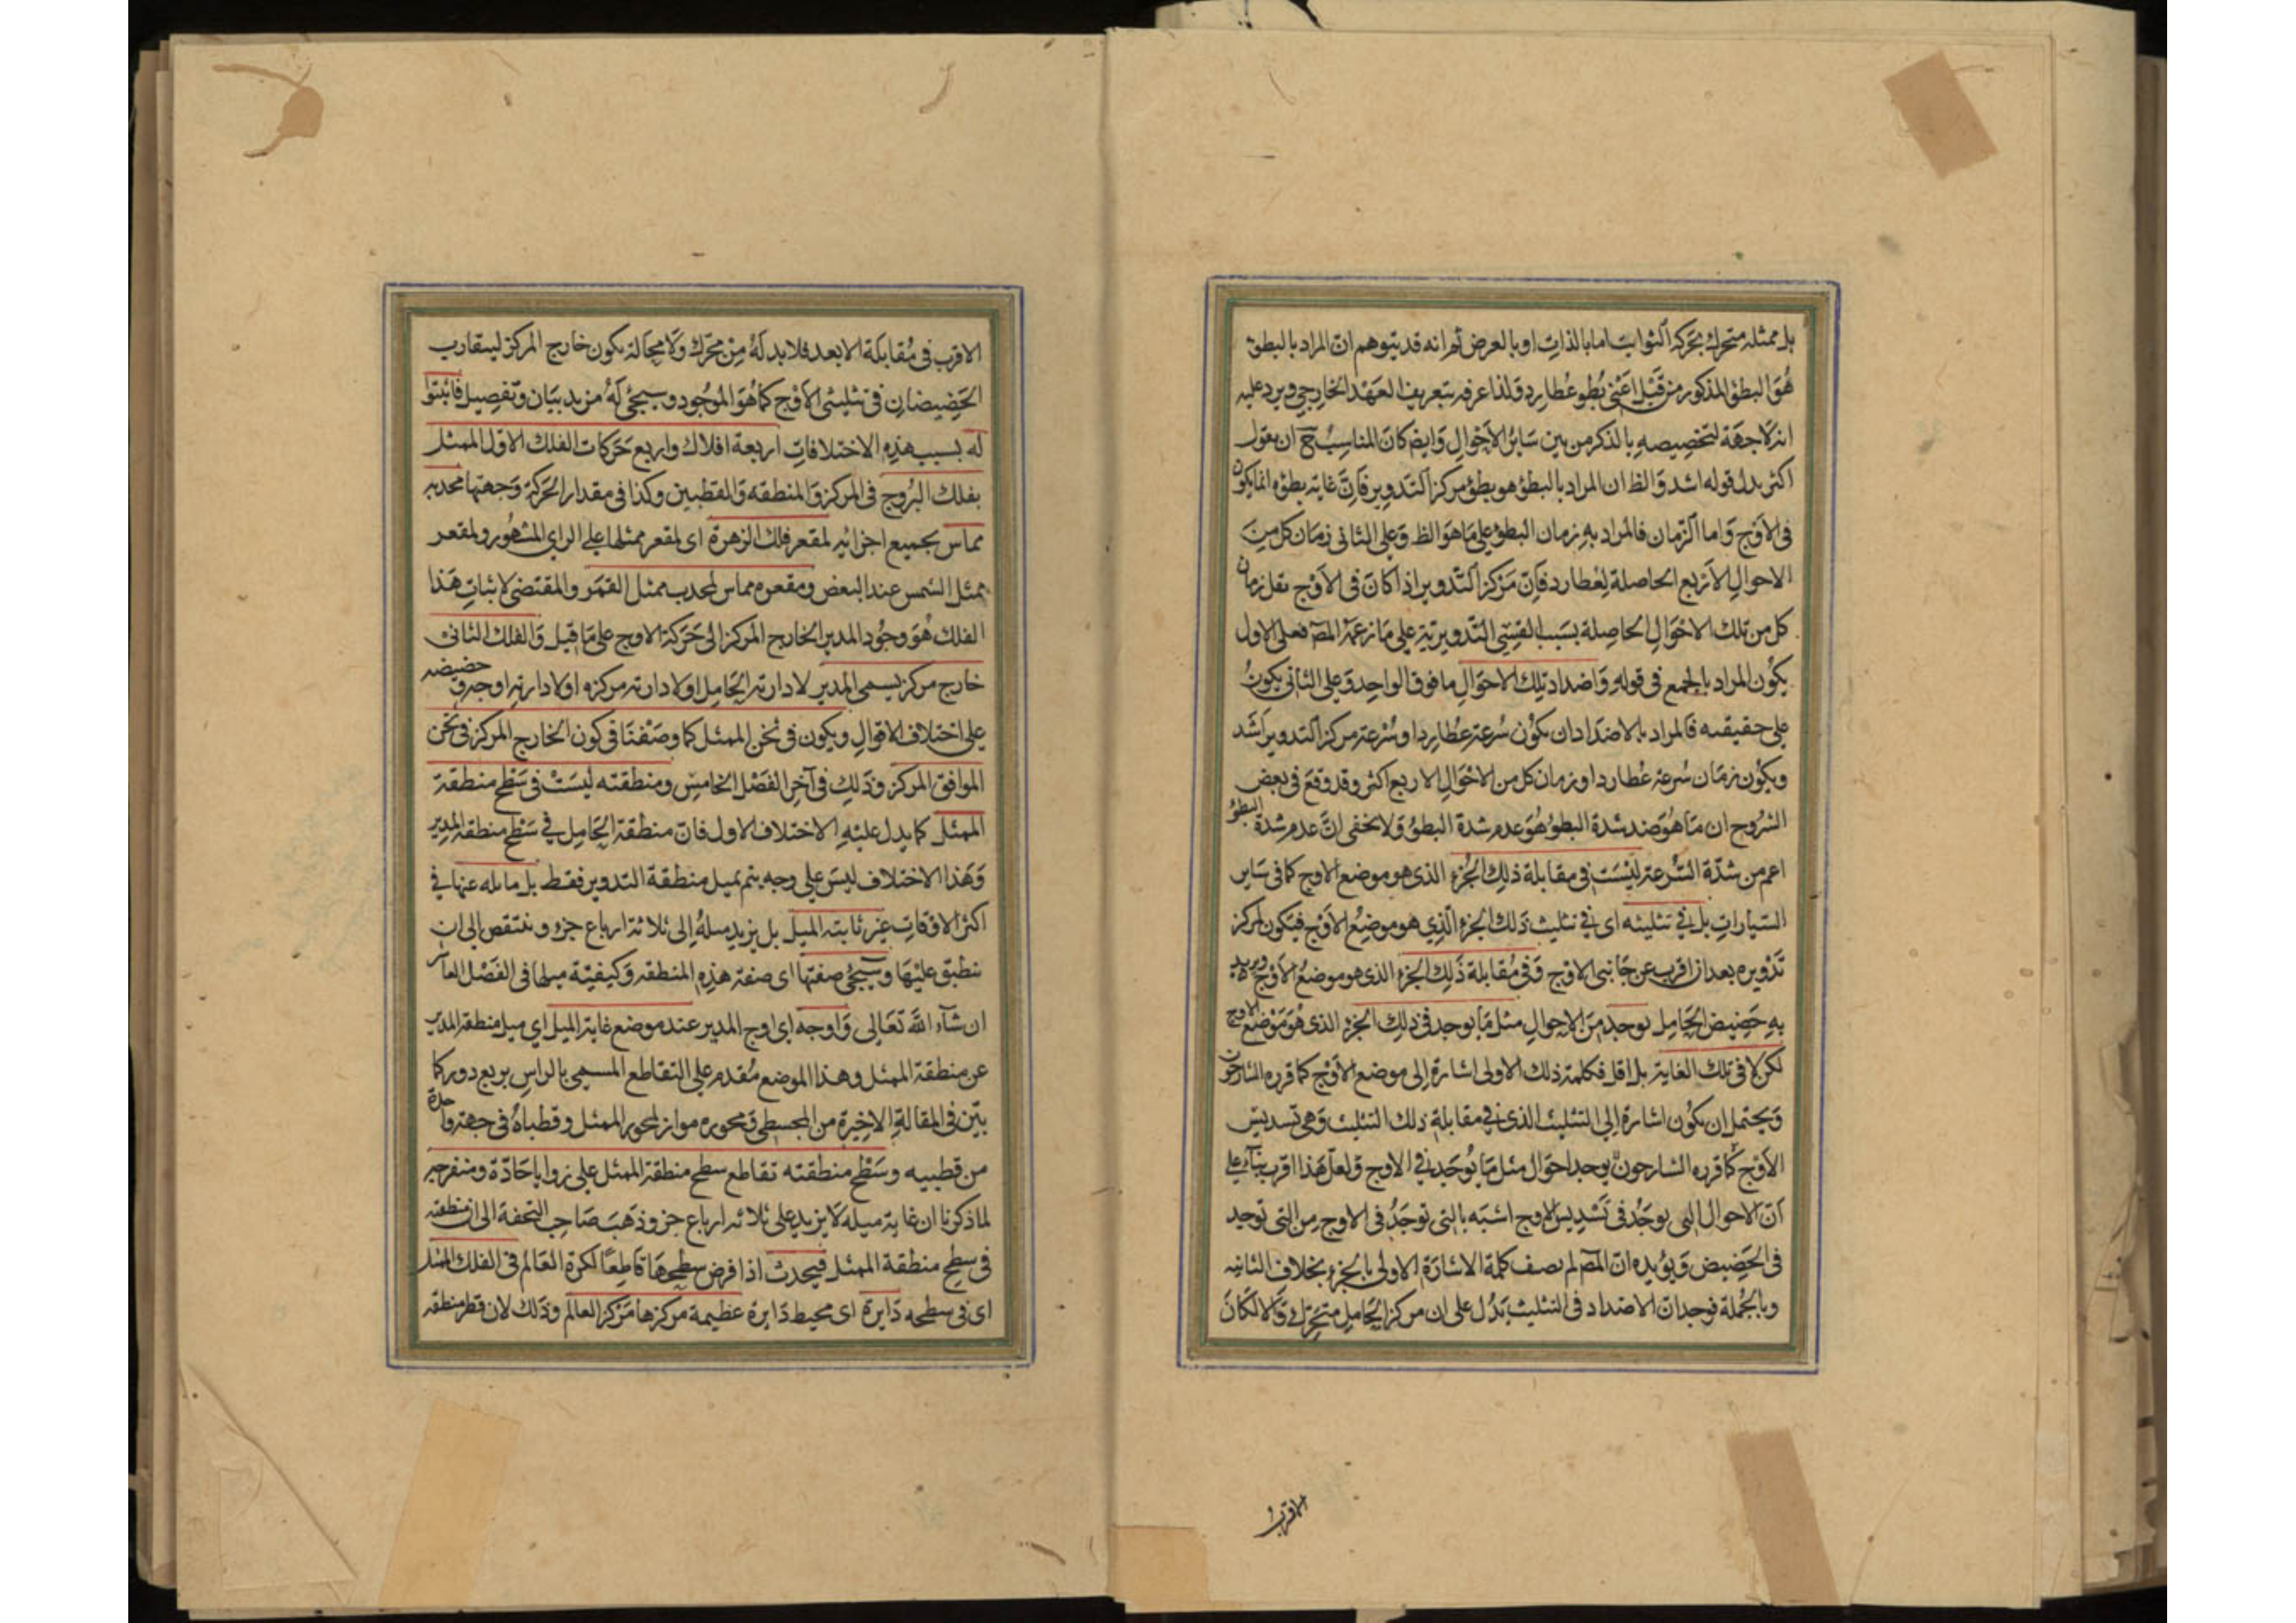 بل ممثله متحرك بحركة الثوابت اما بالذات او بالعرض ثم انه قد يتوهم ان المراد بالبطؤ
هُوَ البطؤ المذكور من قَبْل اَعْني بُطؤ عُطارد وَلذا عرفه بتعريف العَهْد الخارجي ويرد عليه
انه لا جهَة لتخصيصهِ بالذكر من بين سَائر الاَحْوالِ وَايضا كانَ المناسِبُ ح ان يقول
اكثر بدل قوله اشد وَالظ ان المراد بالبطؤ هو بطؤ مركز التَدوير فَاِنَّ غاية بطؤه انما يكون
في الاَوْج وَاما الزمان فالمراد بهِ زمان البطؤ على مَا هوَ الظ وَعلى الثاني زمَان كل منَ
الاحوالِ الاَربع الحاصلة لِعُطارد فَاِنّ مَرْكز التَدوير اذا كانَ في الاَوْج يقل زمان
كل من تلك الاحْوَالِ الحاصِلة بسَبَب القِسِي التَدويرية على مَا زعمَهُ المصَ فعلى الاول
يَكُون المراد بالجمع في قولهِ وَاضداد تلك الاحوَالِ ما فوق الواحِد وَعلى الثاني يكونُ
على حقيقته فالمراد بالاضدَاد ان يكُون سُرعَة عُطارد او سُرْعة مركز التدوير اَشَد
ويكُون زمَان سُرعة عُطارد او زمان كل من الاحْوَالِ الاربع اكثر وقد وَقعَ في بعض
الشرُوح ان مَا هُوَ ضد شدة البطؤ هُوَ عدم شدة البطؤ وَلا يخفى اَنّ عدم شدة البطؤ
اعم من شدّة السُّرعة ليْسَت في مقابلة ذلِك الجُزء الذي هو موضع الاوج كما في سَاير
السيارات بل في تثليثه اى في تثليث ذَلك الجزء الَّذِي هو موضِعُ الاَوْج فيَكون لمركز
تَدْويره بعد ازاقرب عن جَانبى الاوْج وَفي مُقابلة ذَلِك الجزء الذي هو موضعُ الاَوْج ويريد
بهِ حَضِيض الحَامِل يوجد منَ الاحوالِ مثل مَا يوجد في ذلِك الجزء الذي هُوَ مَوْضع الاوج
لكن لا في تلك الغاية بل اقل فكلمة ذلك الاولى اشارة الى موضع الاَوْج كما قرره الشارحون
وَيحتمل ان يكُون اشارة الى التثليث الذي في مقابلة ذلك التثليث وَهي تسديس
الاَوْج كما قرره الشارحون يوجد احوَال مثل مَا يُوجَد في الاوج وَلعل هَذا اقرب بناء على
اَنّ الاحوال التي يوجَدُ في تَسْديس الاوج اشبَه بالتي توجَدُ في الاوج مِن التى توجد
في الحَضيض وَيؤيده انّ المصَ لم يصف كلمة الاشارَة الاولى بالجزء بخلاف الثانية
وبالجُملة فوجدان الاضداد في التثليث يَدُل على ان مركز الحَامِل متحرّك وَالا لكانَ
الاقرب
الاقرب في مُقابلة الابعد فلا بد لَهُ مِنْ محرّك وَلا محالة يكون خارج المركز ليتقارب
الحَضِيضَان في تثليثي الاَوْج كمَا هُوَ الموُجود وسيجئ لَهُ مزيد بيَان وتفصِيل فاثبتوا
له بسبب هذِهِ الاختلافاتِ اربعة افلاك واربع حَركات الفلك الاوّل الممثل
بفلك البرُوج في المركز وَالمنطقه وَالقطبين وكذا في مقدار الحركة وَجهتها محدبه
مماس بجميع اجزائه لمقعر فلك الزهرة اى لمقعر ممثلها على الراي المشهُور ولمقعر
ممثل الشمس عند البعض ومقعره مماس لمحدب ممثل القمَر والمقتضي لاثباتِ هَذا
الفلك هُوَ وجُود المدير الخارج المركز الى حَركة الاوج على مَا قيل وَالفلك الثانى
خارج مركز يسمى المدير لادارته الحَامِل او لادارته مركزه او لادارته اوجه وحضيضه
على اختلاف الاقوالِ ويكون في ثخن الممثل كما وصَفْنَا في كون الخارج المركز في ثخن
الموافق المركز وَذَلِك في آخِر الفَصْل الخامِس ومنطقته ليسَتْ في سَطح منطقة
الممثل كما يدل عليْهِ الاختلاف الاول فان منطقة الحَامِل في سَطح منطقة المدير
وَهَذا الاختلاف ليسَ على وجه يتم بميل منطقة التدوير فقط بل مايله عنها في
اكثر الاوقَاتِ غير ثابته الميل بل يزيد ميلهُ اِلى ثلاثة ارباع جزء وينتقص الى ان
ينطبق عليْهَا وسَيجئُ صفتها اى صفة هذِهِ المنطقه وَكيفيّة ميلها في الفصْل العاشر
ان شآء الله تعَالى وَاوجه اي اوج المدير عند موضع غاية الميل اي ميل منطقة المدير
عن منطقة الممثل وهذا الموضع مُقدم على التقاطع المسمى بالراسِ بربع دور كما
بيّن في المقالةِ الاخِيرة من المجسطى وَمحوره مواز لمحور الممثل وقطباهُ في جهة واحدة
من قطبيه وسَطْح منطقته تقاطع سطح منطقة الممثل على زوايا حَادّة ومنفرجه
لما ذكرنا ان غاية ميله لا يزيد على ثلاثه ارباع جزء وذهَبَ صَاحِب التحفة الى ان منطقته
في سطح منطقة الممثل فيحدث اذا فرض سطحهَا قَاطِعًا لكرة العَالم في الفلك الممثل
اى في سطحه دَايرة اى محيط دَايرة عظيمة مركزها مَركز العالم وَذلك لان قطر منطقه